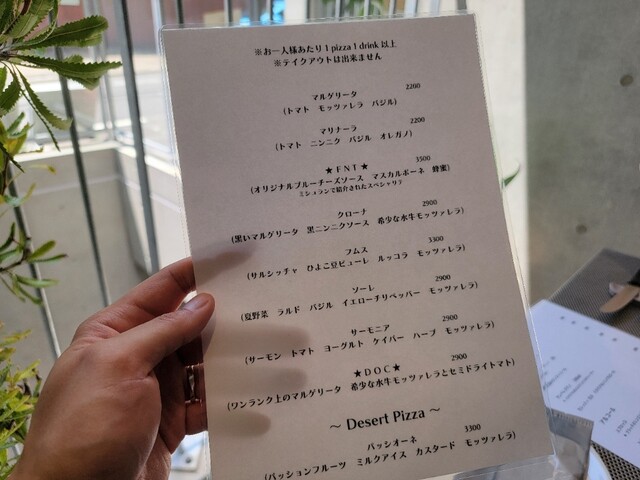 ※お一人様あたり 1 pizza 1 drink 以上
※テイクアウトは出来ません
マルゲリータ 2200
(トマト モッツァレラ バジル)
マリナーラ 2200
(トマト ニンニク バジル オレガノ)
★FNT★ 3500
(オリジナルブルーチーズソース マスカルポーネ 蜂蜜)
ミシュランで紹介されたスペシャリテ
クローナ 2900
(黒いマルゲリータ 黒ニンニクソース 希少な水牛モッツァレラ)
フムス 3300
(サルシッチャ ひよこ豆ピューレ ルッコラ モッツァレラ)
ソーレ 2900
(夏野菜 ラルド バジル イエローチリペッパー モッツァレラ)
サーモニア 2900
(サーモン トマト ヨーグルト ケイパー ハーブ モッツァレラ)
★DOC★ 2900
(ワンランク上のマルゲリータ 希少な水牛モッツァレラとセミドライトマト)
～ Desert Pizza ～
パッシオーネ 3300
(パッションフルーツ ミルクアイス カスタード モッツァレラ)